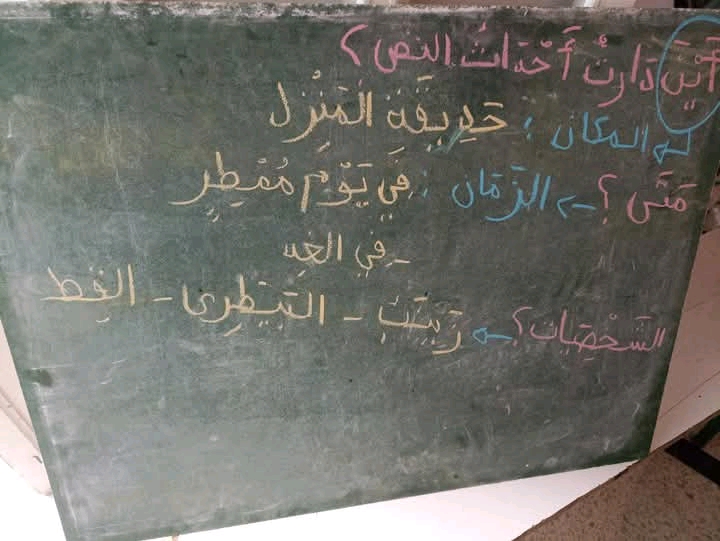 أَيْنَ دَارتْ أَحْدَاثُ النص؟
المكان : حَدِيقَة المَنْزِل
مَتَى ؟ الزَّمَان : فِي يَوْمٍ مُمْطِرٍ
- فِي الغد
الشَخْصِيات؟ زَيْنَبُ - البَيْطَرِى - القِط